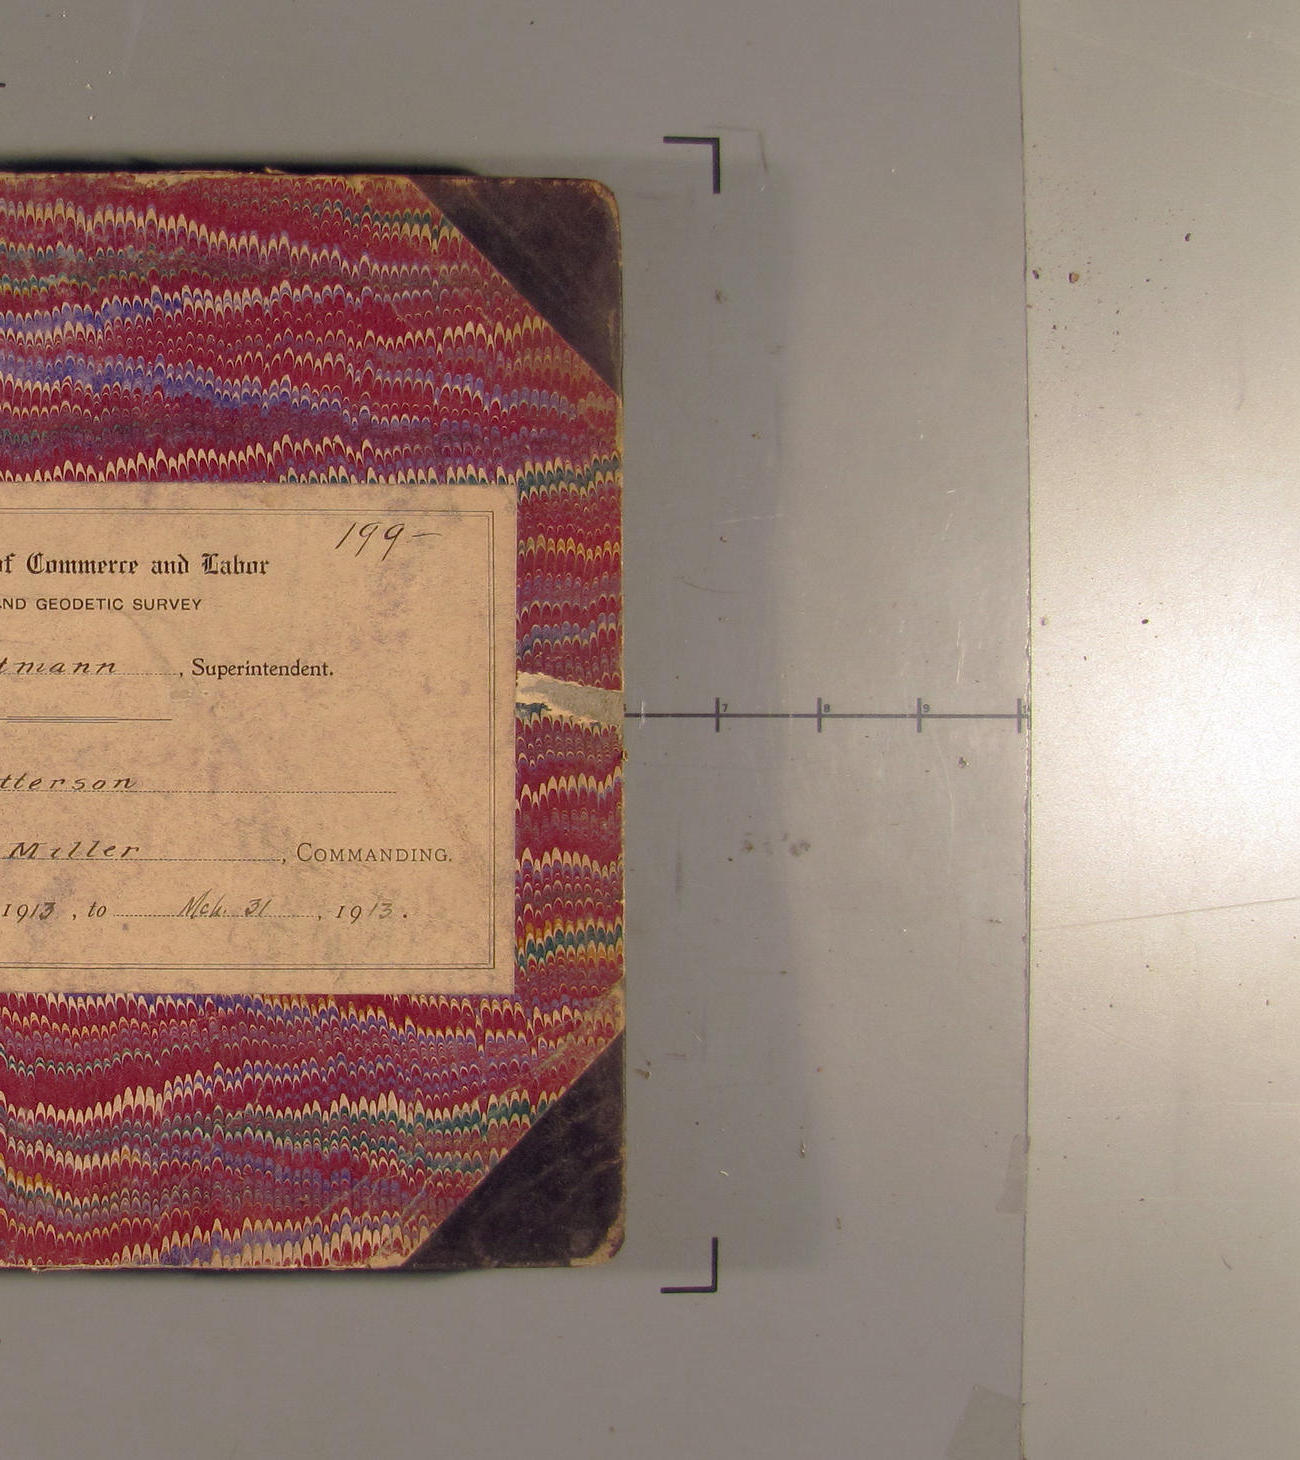 199-
of Commerce and Labor
AND GEODETIC SURVEY
tmann, Superintendent.
tterson
Miller, COMMANDING.
1913, to Mch. 31, 1913.
7 8 9